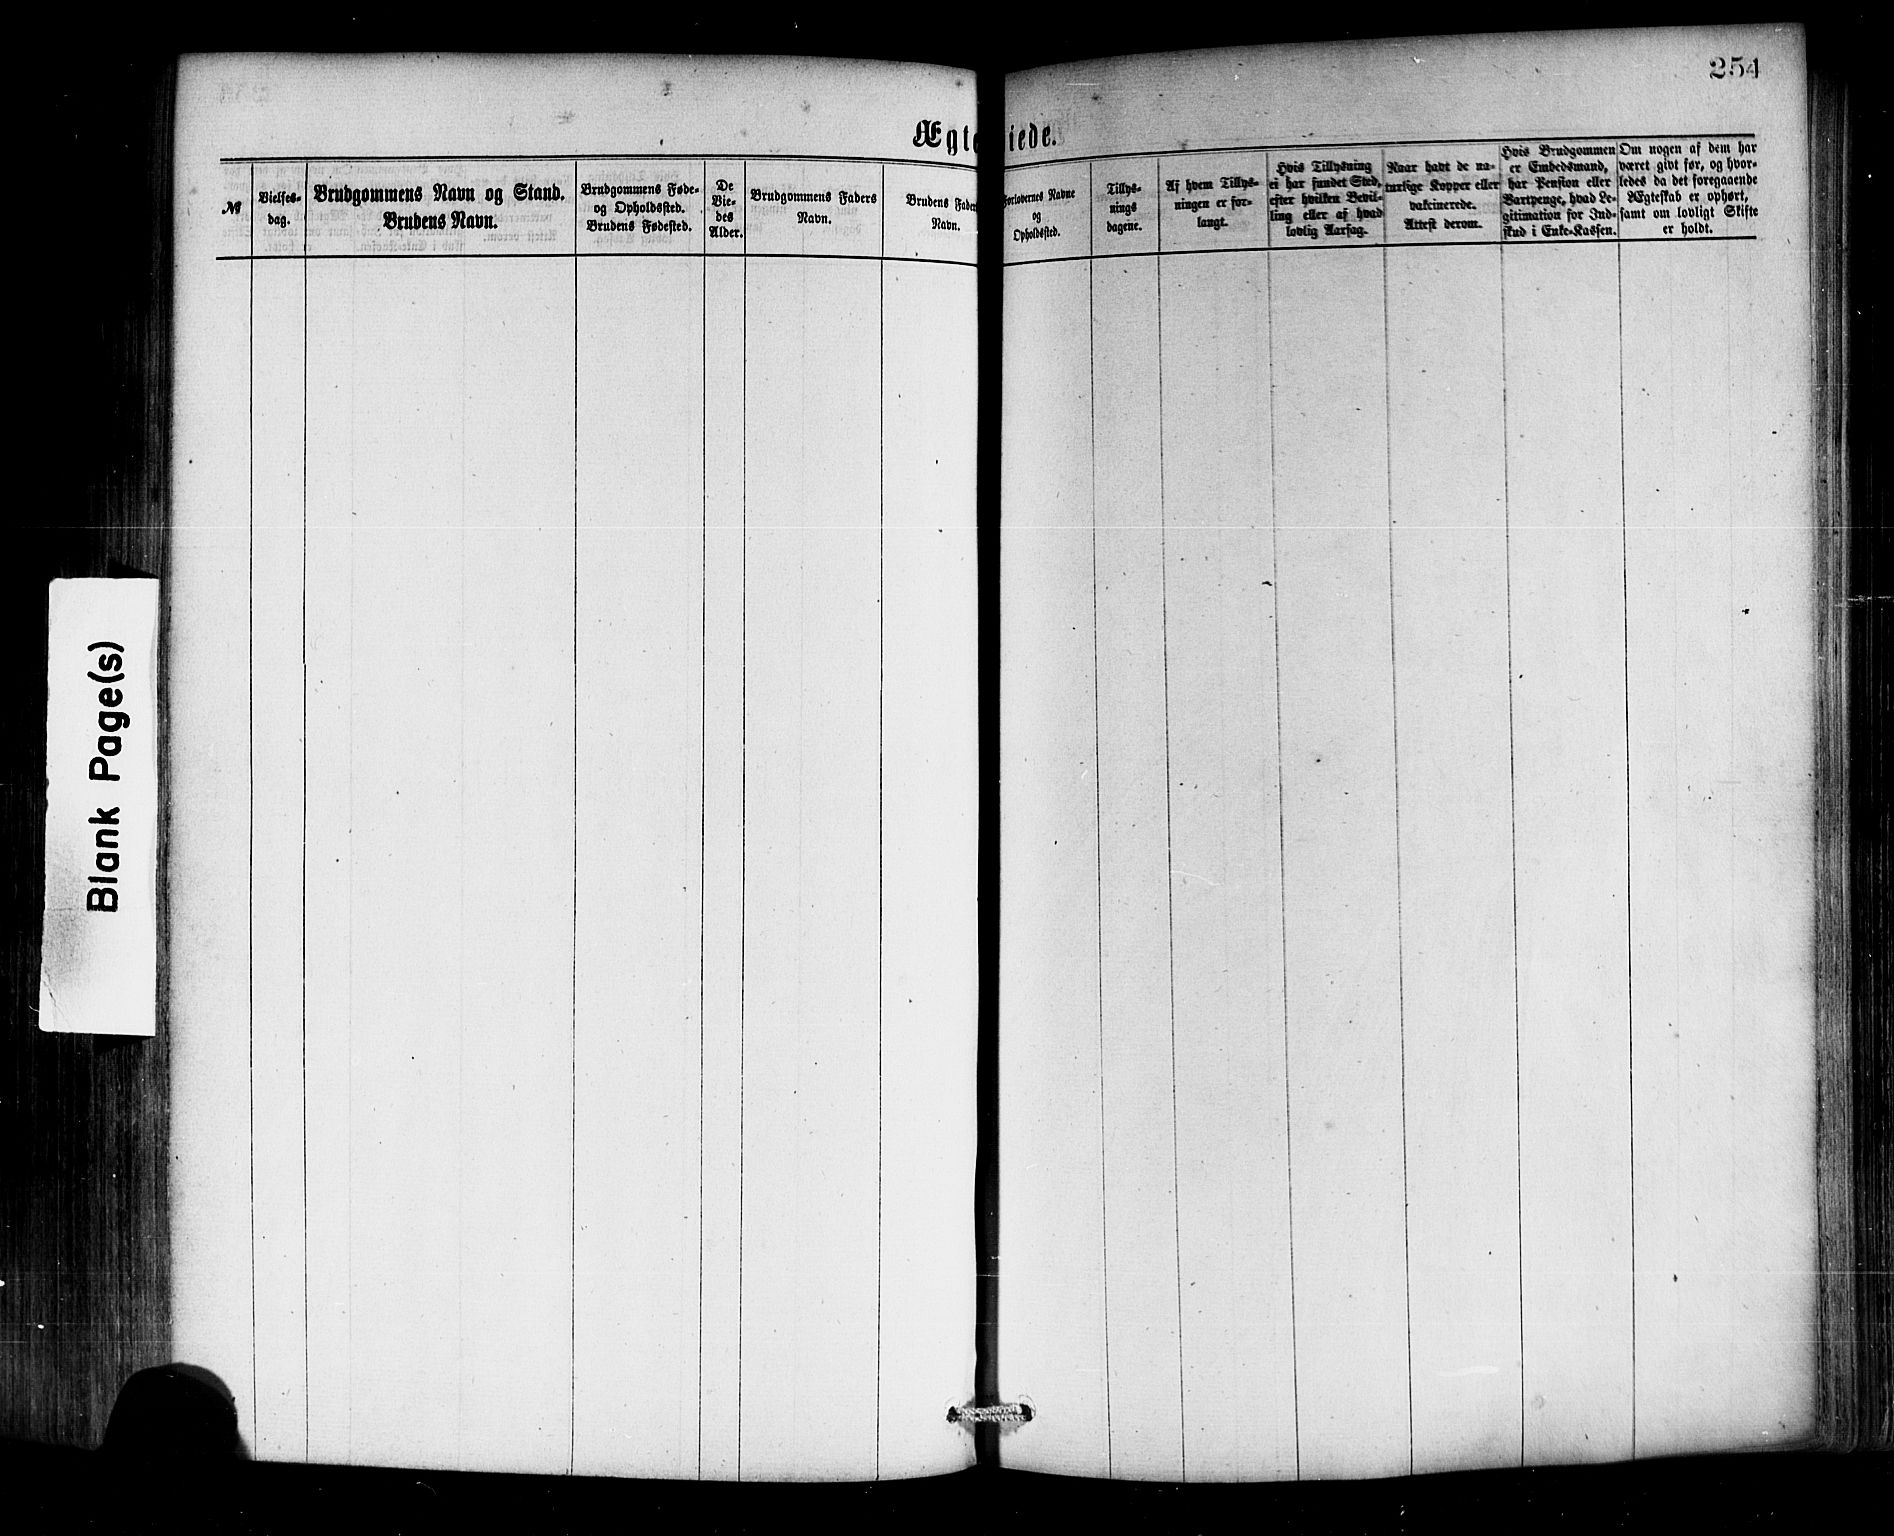 254
Ægte iede.
№
Vielses-
dag.
Brudgommens Navn og Stand.
Brudens Navn.
Brudgommens Føde-
og Opholdssted.
Brudens Fødested.
De
Vie-
des
Alder.
Brudgommens Faders
Navn.
Brudens Faders
Navn.
Forlovernes Navne
og
Opholdssted.
Tillys-
nings
dagene.
Af hvem Tillys-
ningen er for-
langt.
Hvis Tillysning
ei har fundet Sted,
efter hvilken Bevil-
ling eller af hvad
lovlig Aarsag.
Naar havt de na-
turlige Kopper eller
vakcinerede.
Attest derom.
Hvis Brudgommen
er Embedsmand,
har Pension eller
Vartpenge, hvad Le-
gitimation for Ind-
skud i Enke-Kassen.
Om nogen af dem har
været givt før, og hvor-
ledes da det foregaaende
Ægteskab er ophørt,
samt om lovligt Skifte
er holdt.
Blank Page(s)